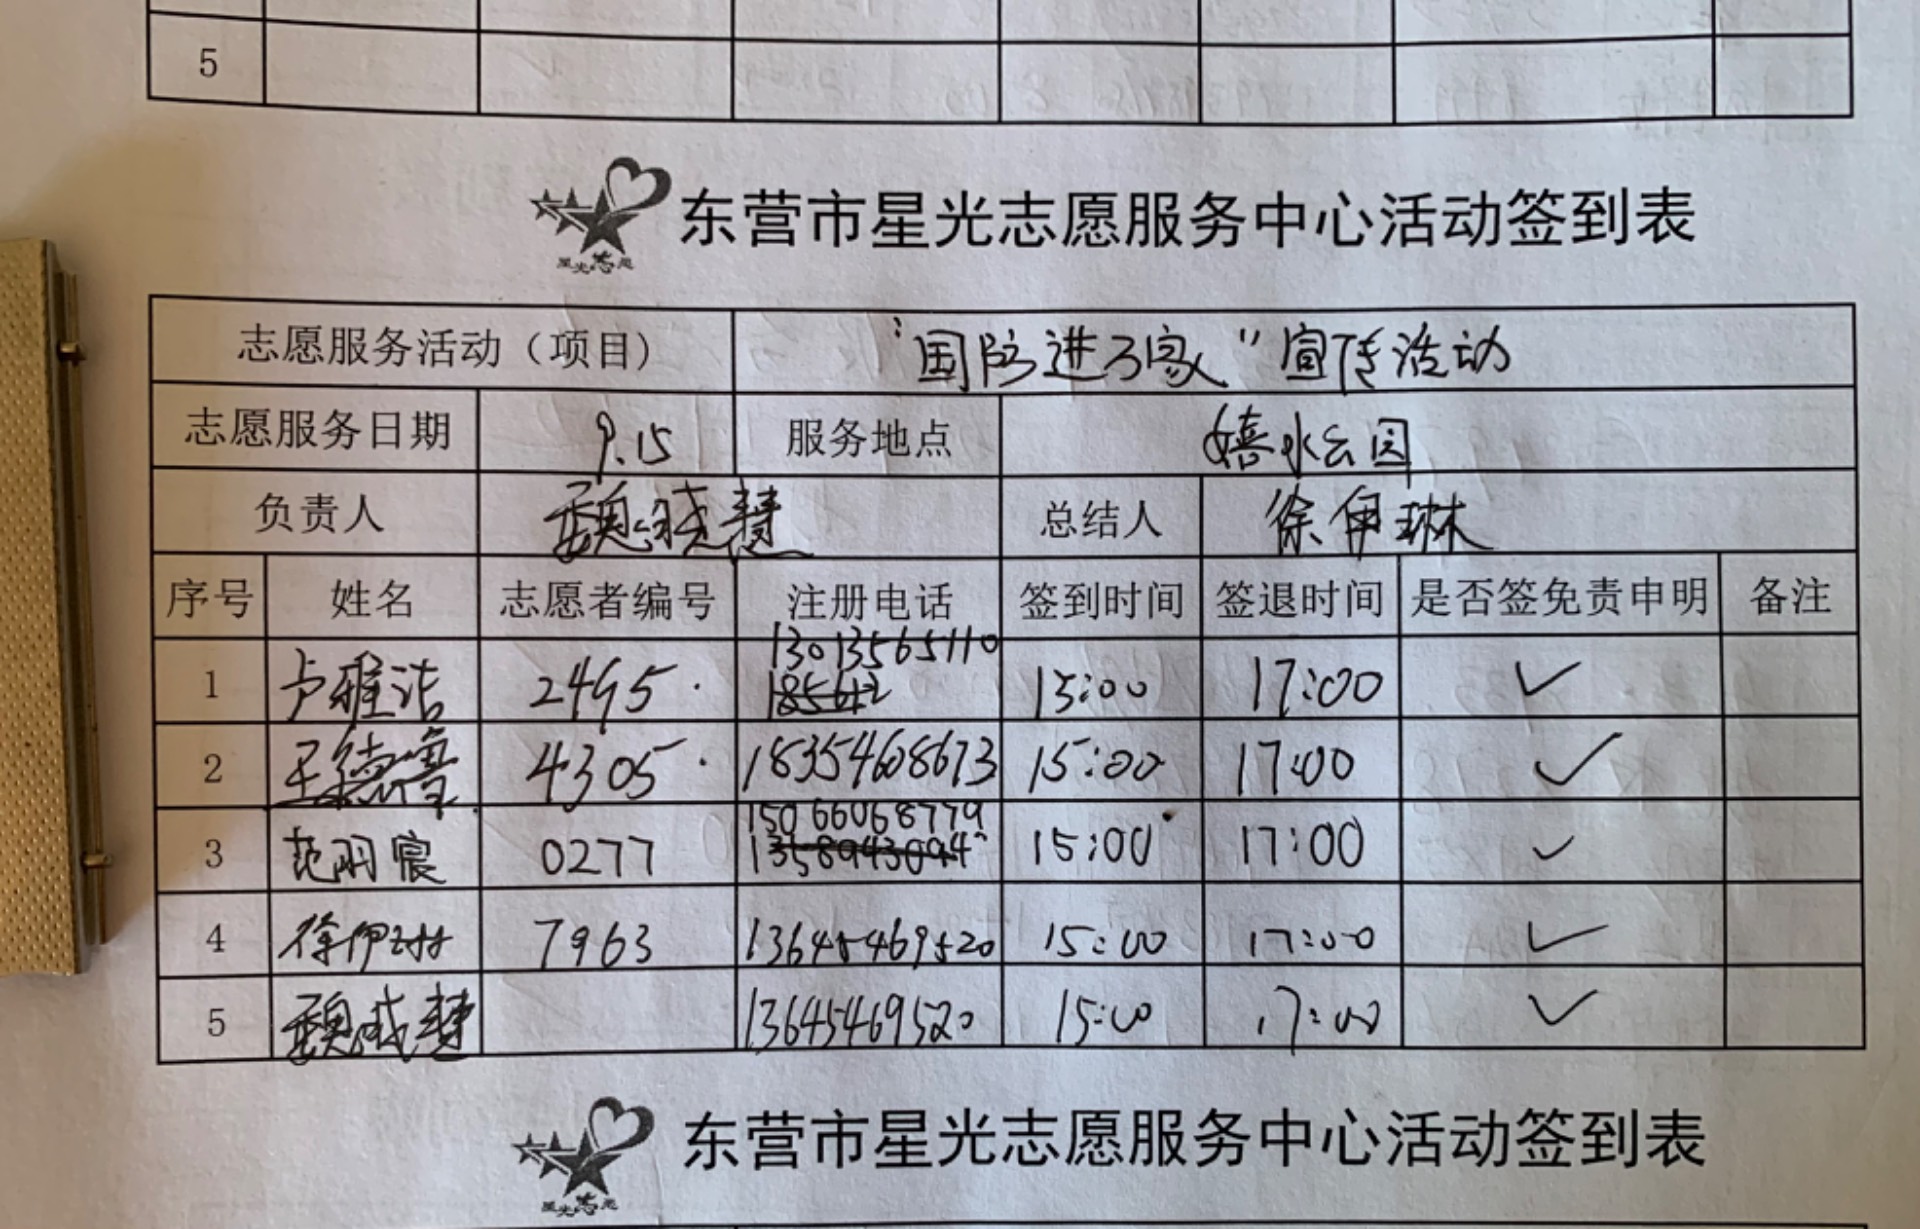 5
东营市星光志愿服务中心活动签到表
星光志愿
志愿服务活动（项目） “国防进万家”宣传活动
志愿服务日期 9.15 服务地点 嬉水公园
负责人 魏晓慧 总结人 徐伊琳
序号 姓名 志愿者编号 注册电话 签到时间 签退时间 是否签免责申明 备注
13013565110
1 卢雅洁 2495 15:00 17:00 ✓
2 王德鲁 4305 18354608673 15:00 17:00 ✓
15066068779
3 范明宸 0277 13589943094 15:00 17:00 ✓
4 徐伊琳 7963 13645469520 15:00 17:00 ✓
5 魏晓慧 13645469520 15:00 17:00 ✓
东营市星光志愿服务中心活动签到表
星光志愿